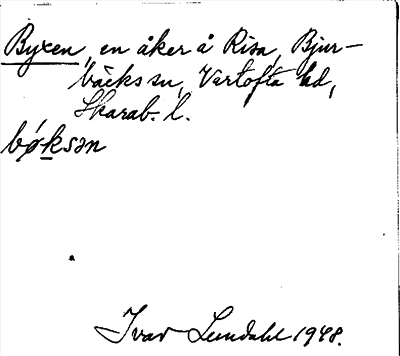 Byxen, en åker å Risa, Bjur-
bäcks sn, Vartofta hd,
Skarab. l.
bøksən
Ivar Lundahl 1948.